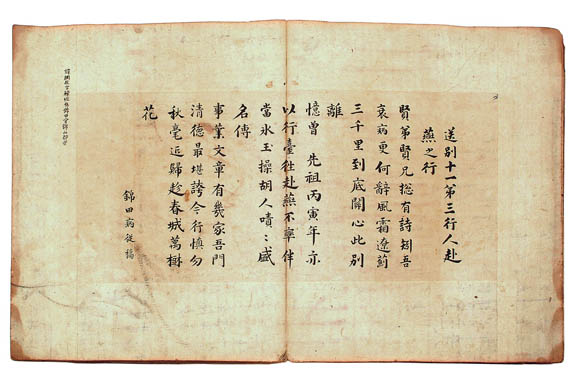 送別十一第三行人赴
燕之行
賢第賢兄摠有詩矧吾
衰病更何辭風霜遼薊
三千里到底關心此別
離
憶曾 先祖丙寅年亦
以行臺徃赴燕不
當氷玉操胡人嘖〻盛
名傳
事業文章有幾家吾門
清德最堪誇今行慎勿
秋毫近歸趁春城萬樹
花
錦田病從